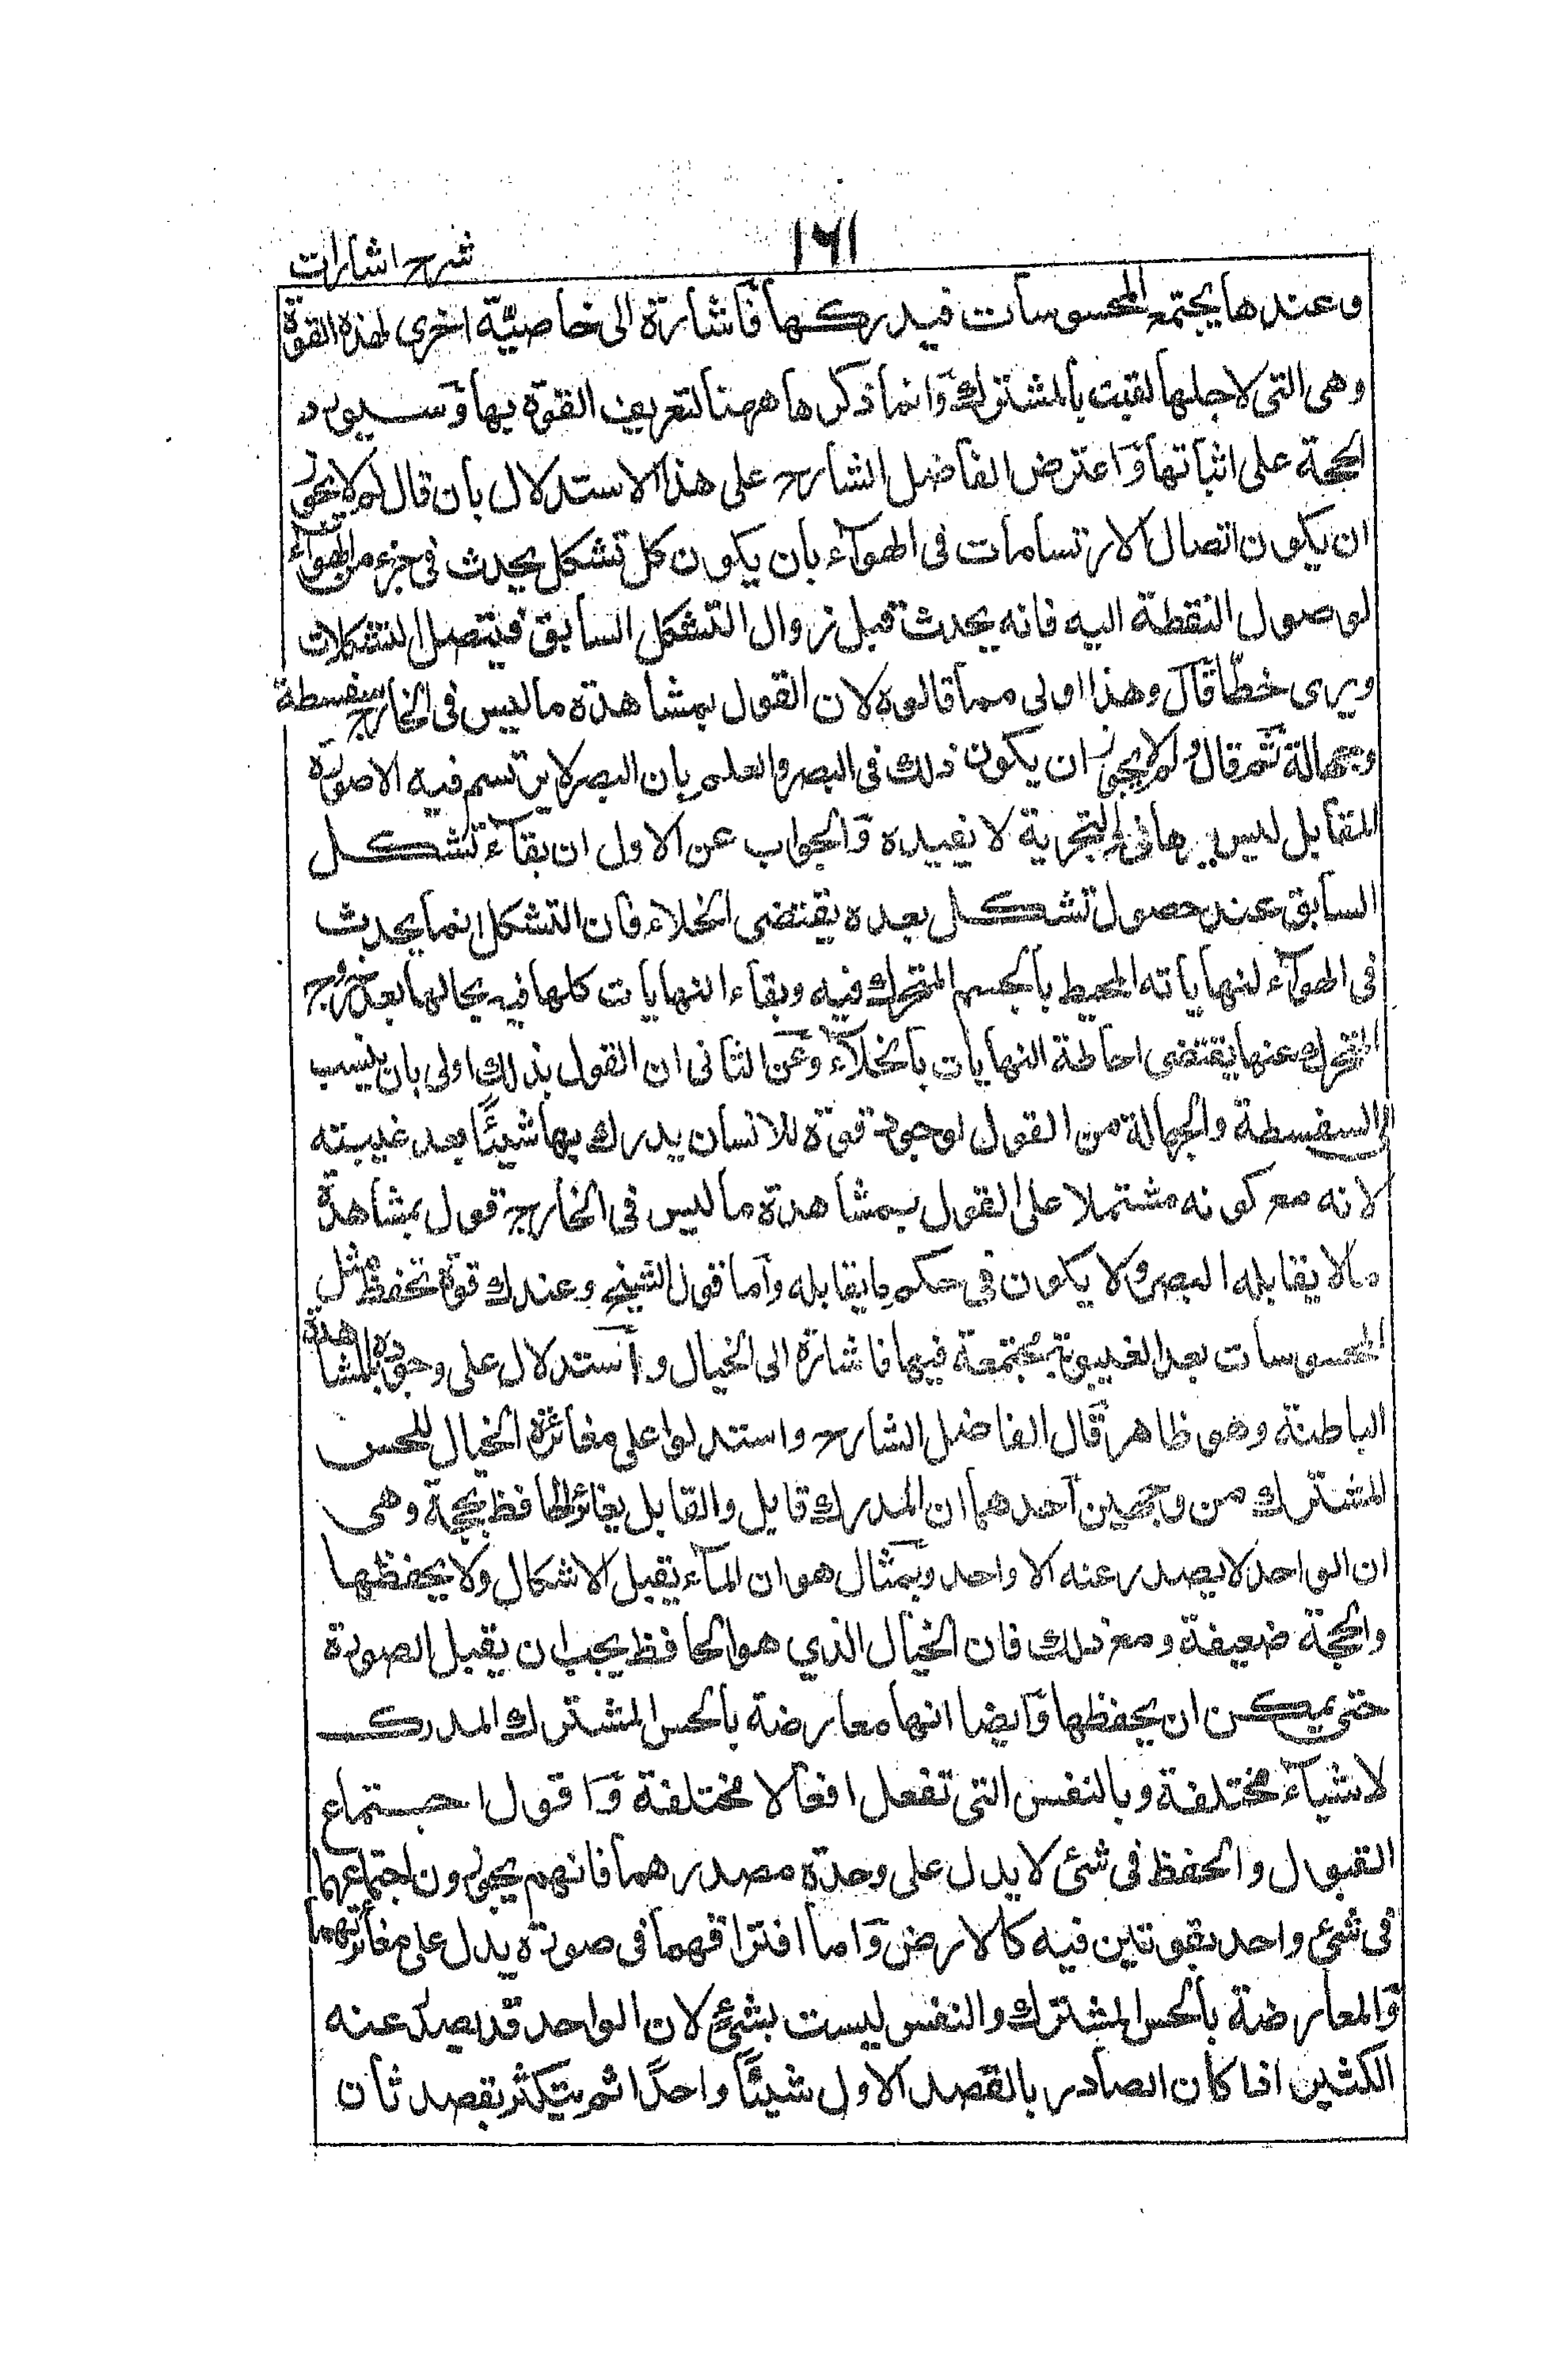 ١٦١
شرح اشارات
وعندها يجتمع المحسوسات فيدركها فأشارة الى خاصيّة اخرى لهذه القوة
وهى التى لاجلها لقبت بالمشترك وانما ذكرها ههنا لتعريف القوة بها وسيورد
الحجة على اثباتها واعترض الفاضل الشارح على هذا الاستدلال بان قال لم لا يجوز
ان يكون اتصال الارتسامات فى الهوآء بان يكون كل تشكل يحدث فى جزء من الهوآء
لوصول النقطة اليه فانه يحدث قبل زوال التشكل السابق فيتصل التشكلات
ويرى خطّا قال وهذا اولى مما قالوه لان القول بمشاهدة ما ليس فى الخارج سفسطة
وجهالة ثم قال ولم لا يجوز ان يكون ذلك فى البصر والعلم بان البصر لا يرتسم فيه الا صورة
المقابل ليس ببرهانى والتجربة لا تفيده والجواب عن الاول ان بقآء تشكل
السابق عند حصول تشكل بعده يقتضى الخلاء فان التشكل انما يحدث
فى الهوآء لنهاياته المحيط بالجسم المتحرك فيه وبقاء النهايات كلها فيه بحالها بعد خروج
المتحرك عنها يقتضى احاطة النهايات بالخلآء وعن الثانى ان القول بذلك اولى بان ينسب
الى السفسطة والجهالة من القول لوجود قوة للانسان يدرك بها شيئًا بعد غيبته
لانه مع كونه مشتملا على القول بمشاهدة ما ليس فى الخارج قول بمشاهدة
ما لا يقابله البصر ولا يكون فى حكم ما يقابله وأما قول الشيخ وعندك قوة تحفظ مثل
المحسوسات بعد الغيبوبة مجتمعة فيها فاشارة الى الخيال واستدلال على وجوده بالمشاهدة
الباطنة وهو ظاهر قال الفاضل الشارح واستدلوا على مغائرة الخيال للحس
المشترك من وجهين احدهما ان المدرك قابل والقابل يغائر الحافظ بحجة وهى
ان الواحد لا يصدر عنه الا واحد وبمثال هو ان المآء يقبل الاشكال ولا يحفظها
والحجة ضعيفة ومع ذلك فان الخيال الذي هو الحافظ يجب ان يقبل الصورة
حتى يمكن ان يحفظها وايضا انها معارضة بالحس المشترك المدرك
لاشيآء مختلفة وبالنفس التى تفعل افعالا مختلفة واقول اجتماع
القبول والحفظ فى شئ لا يدل على وحدة مصدرهما فانهم يجوزون اجتماعهما
فى شئ واحد بقوتين فيه كالارض واما افتراقهما فى صورة يدل على مغائرتهما
والمعارضة بالحس المشترك والنفس ليست بشئ لان الواحد قد يصدر عنه
الكثير اذا كان الصادر بالقصد الاول شيئًا واحدًا ثم يتكثر بقصد ثان